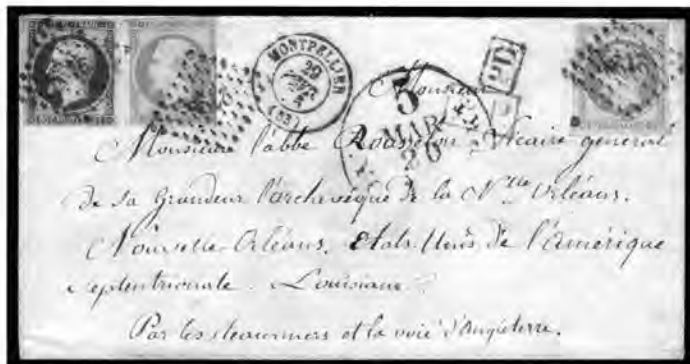 MONTPELLIER
(33)
PD
5
MAR
20
Monsieur
Monsieur l'abbé Rousselon Vicaire général
de Sa Grandeur l'archevêque de la Nlle Orléans.
Nouvelle Orléans. Etats Unis de l'Amérique
Septentrionale. Louisiane
Par les steammers et la voie d'Angleterre.